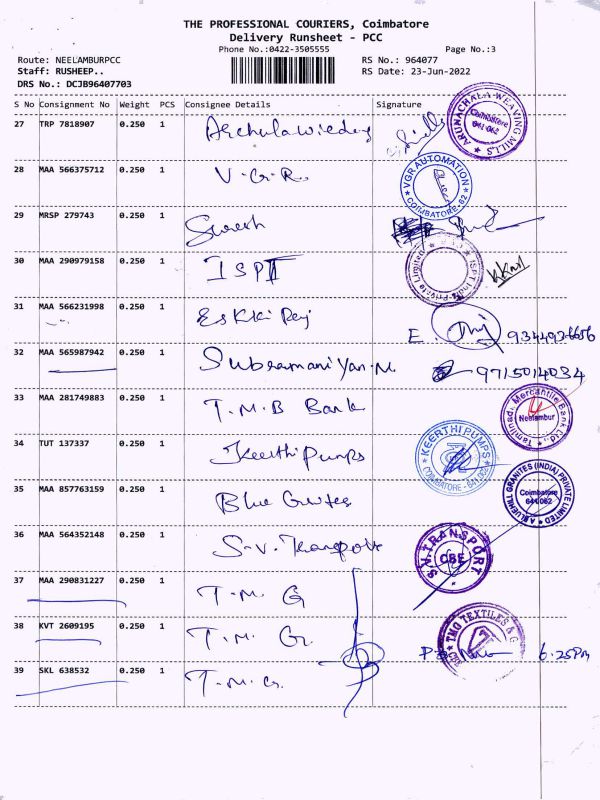 THE PROFESSIONAL COURIERS, Coimbatore
Delivery Runsheet - PCC
Phone No.:0422-3505555
Page No.:3
Route: NEELAMBURPCC
RS No.: 964077
Staff: RUSHEEP..
RS Date: 23-Jun-2022
DRS No.: DCJB96407703
S No Consignment No Weight PCS Consignee Details Signature
27 TRP 7818907 0.250 1
ARUNACHALA WEAVING MILLS Coimbatore 641 062
28 MAA 566375712 0.250 1 V.G.R.
VGR AUTOMATION COIMBATORE-62
29 MRSP 279743 0.250 1 Suresh
30 MAA 290979158 0.250 1
31 MAA 566231998 0.250 1 Eskki Raj
E.
32 MAA 565987942 0.250 1 Subramaniyan.M
9715014034
33 MAA 281749883 0.250 1 T.M.B Bank
Tamilnad Mercantile Bank Ltd., Neelambur
34 TUT 137337 0.250 1 Keerthi Pumps
KEERTHI PUMPS COIMBATORE - 641 062
35 MAA 857763159 0.250 1
BLUEHILL GRANITES (INDIA) PRIVATE LIMITED Coimbatore 641 062
36 MAA 564352148 0.250 1 S.V. Transport
S.V. TRANSPORT CBE
37 MAA 290831227 0.250 1 T.M.G
38 KVT 2609195 0.250 1 T.M.G.
TMG TEXTILES &
6.25Pm
39 SKL 638532 0.250 1 T.M.G.